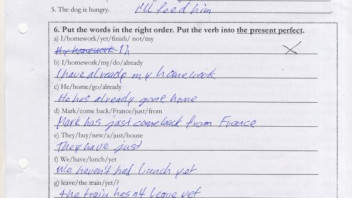 5. The dog is hungry. I'll feed him
6. Put the words in the right order. Put the verb into the present perfect.
a) I/homework/yet/finish/ not/my
My homework I
b) I/homework/my/do/already
I have already my homework
c) He/home/go/already
He has already gone home
d) Mark/come back/France/just/from
Mark has just comeback from France
e) They/buy/new/a/just/house
They have just
f) We/have/lunch/yet
We haven't had lunch yet
g) leave/the train/yet/(
the train hasn't leave yet